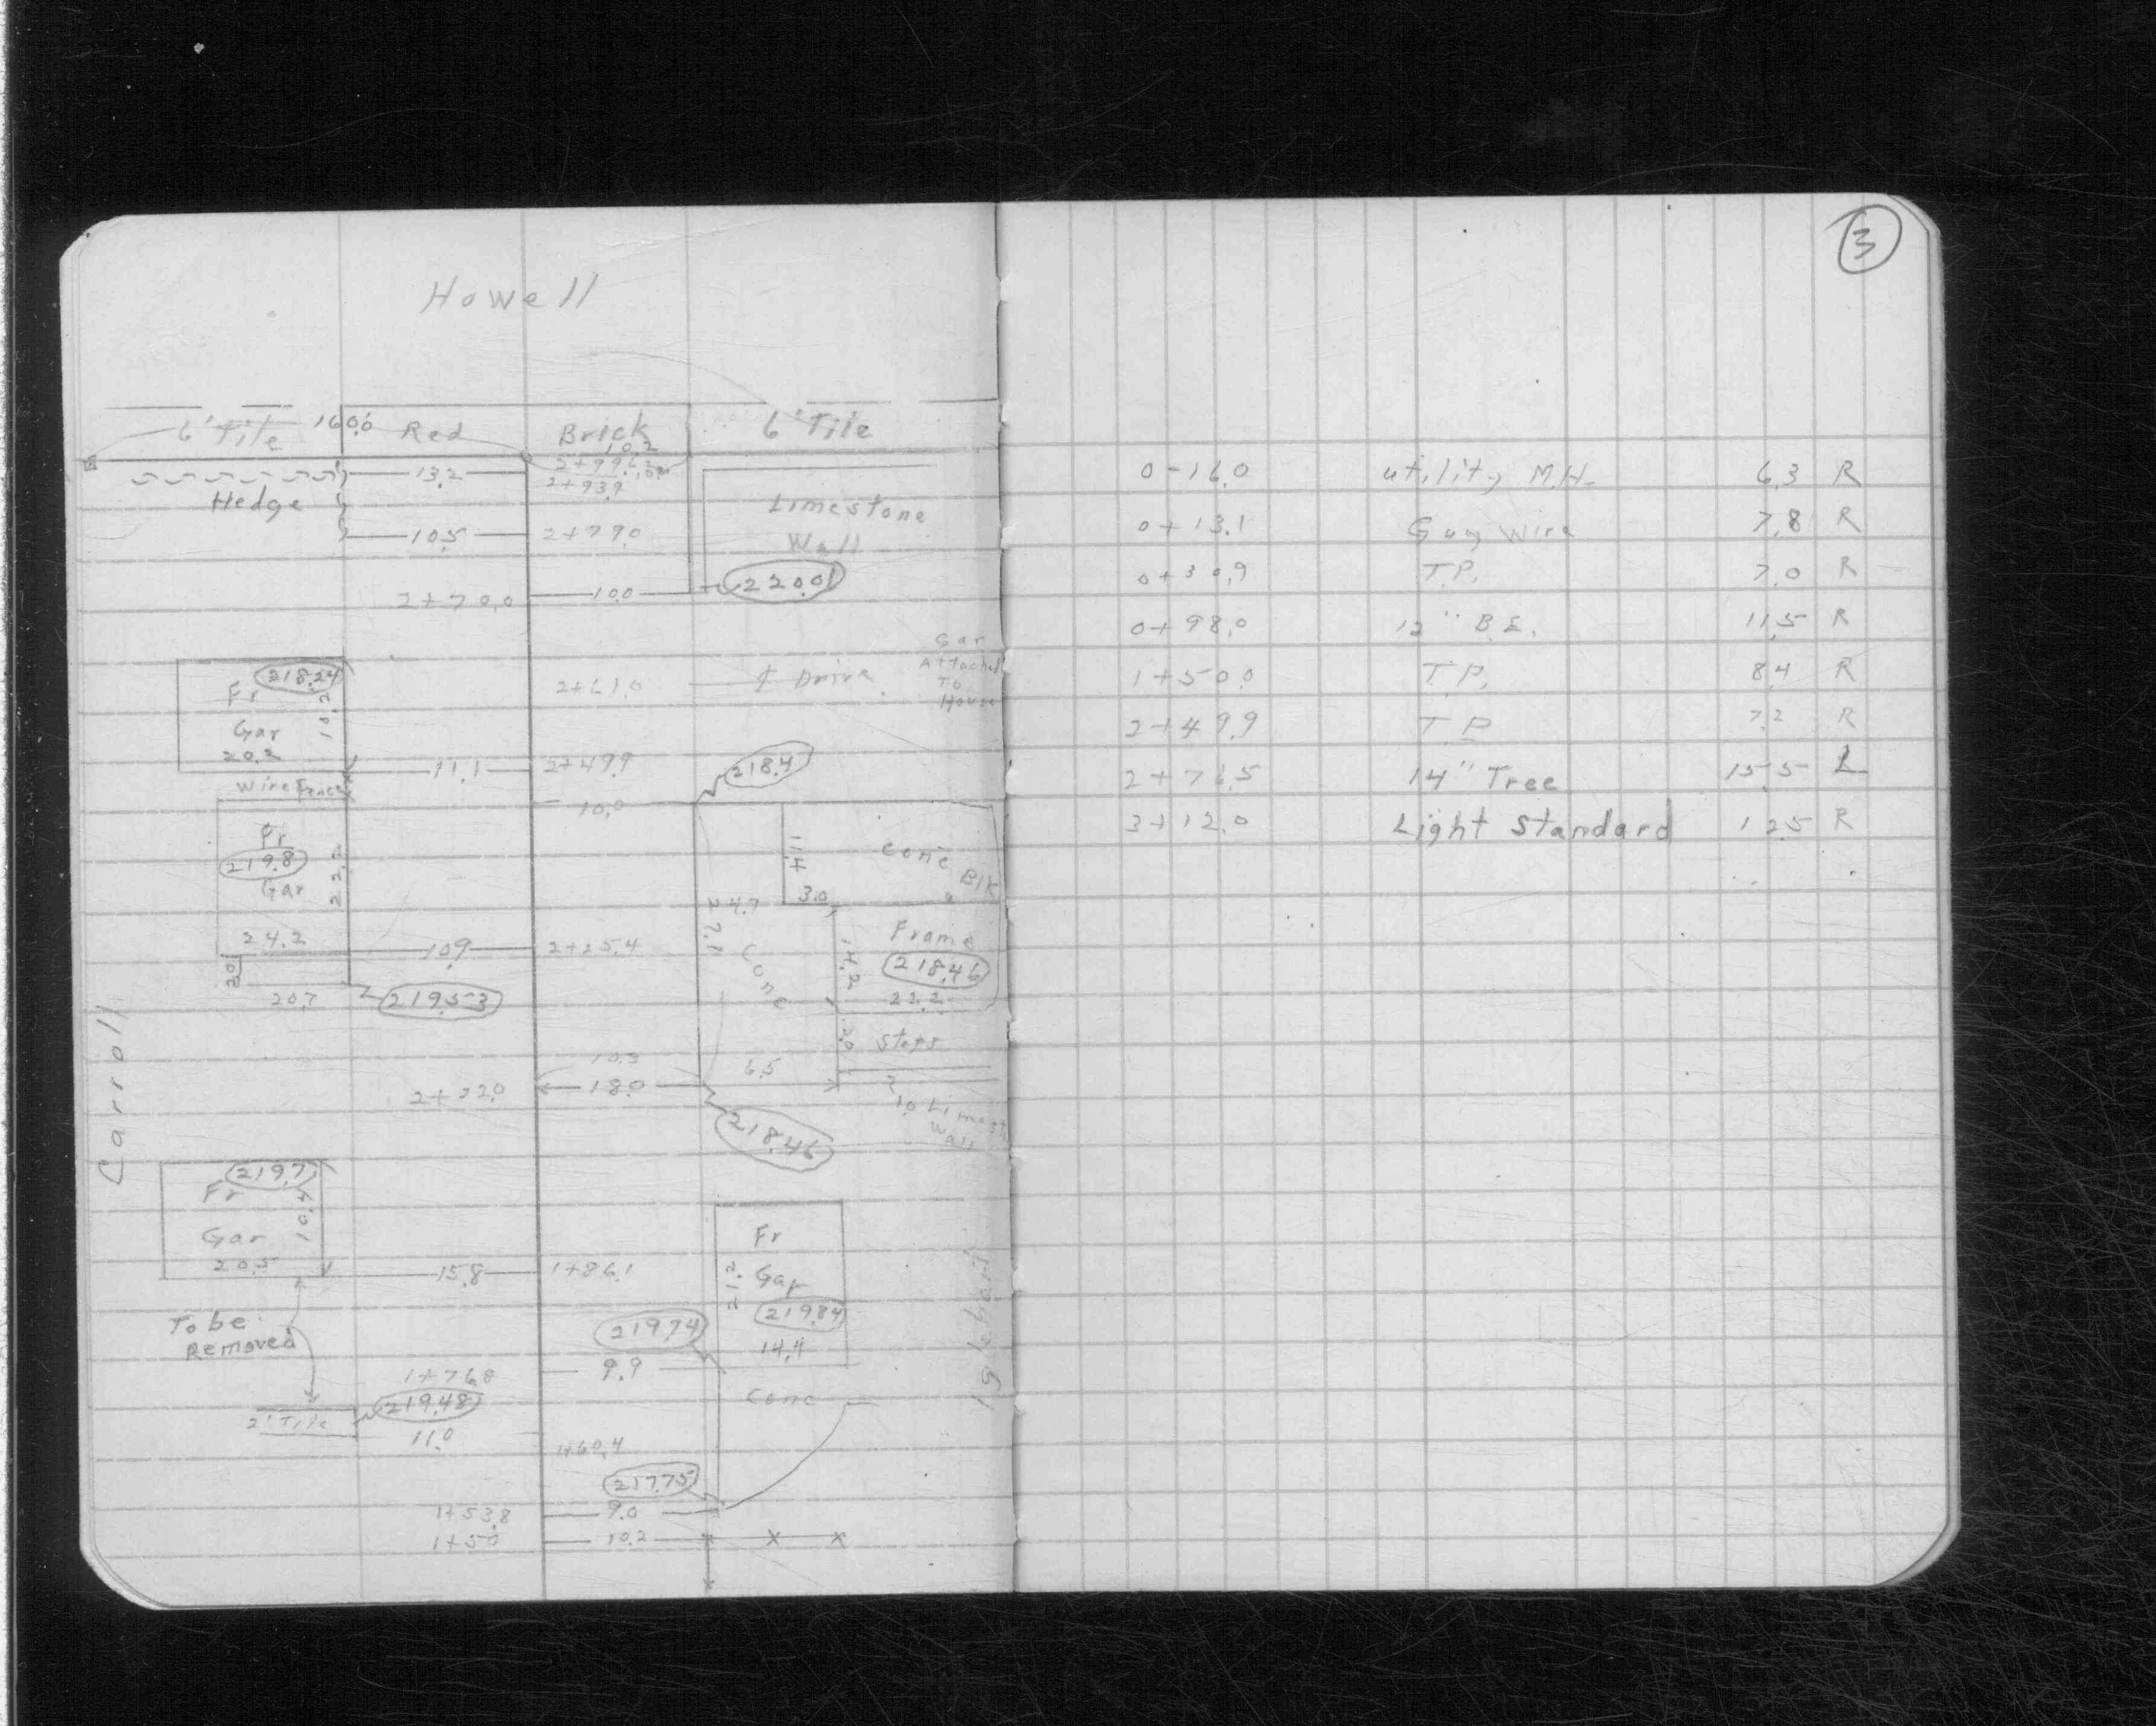 Howell
6' Tile 160.0 Red Brick 6" Tile
10.2
13.2 2+99.6
2+93.9
Hedge Limestone
10.5 2+79.0 Wall
220.0
2+70.0 10.0
Gar
Attached
To
House
218.24
Fr 10.2 2+61.0 ⊄ Drive
Gar
20.2
11.1 2+49.9 218.4
Wire Fence
10.0
Fr
219.8 22.2 11.4 Conc Blk
Gar 3.0
24.7
27.1 Conc
24.2 10.9 2+25.4 Frame
14.2 218.46
3.0 22.2
20.7 219.53
Carroll
Steps
10.3 6.5
2+22.0 18.0
1.0 Limest
Wall
218.46
219.7
Fr 10.4
Gar
20.5
15.8 1+86.1
Fr
21.2 Gar
219.84
14.4
To be
Removed 219.74
9.9
1+76.8
219.48 Conc
2' Tile
11.0
1+60.4
217.75
1+53.8 9.0
1+50 10.2 x x
3
0-16.0 utility M.H. 6.3 R
0+13.1 Guy Wire 7.8 R
0+30.9 T.P. 7.0 R
0+98.0 12" B.E. 11.5 R
1+50.0 T.P. 8.4 R
2+49.9 T P 7.2 R
2+76.5 14" Tree 15.5 L
3+12.0 Light Standard 12.5 R